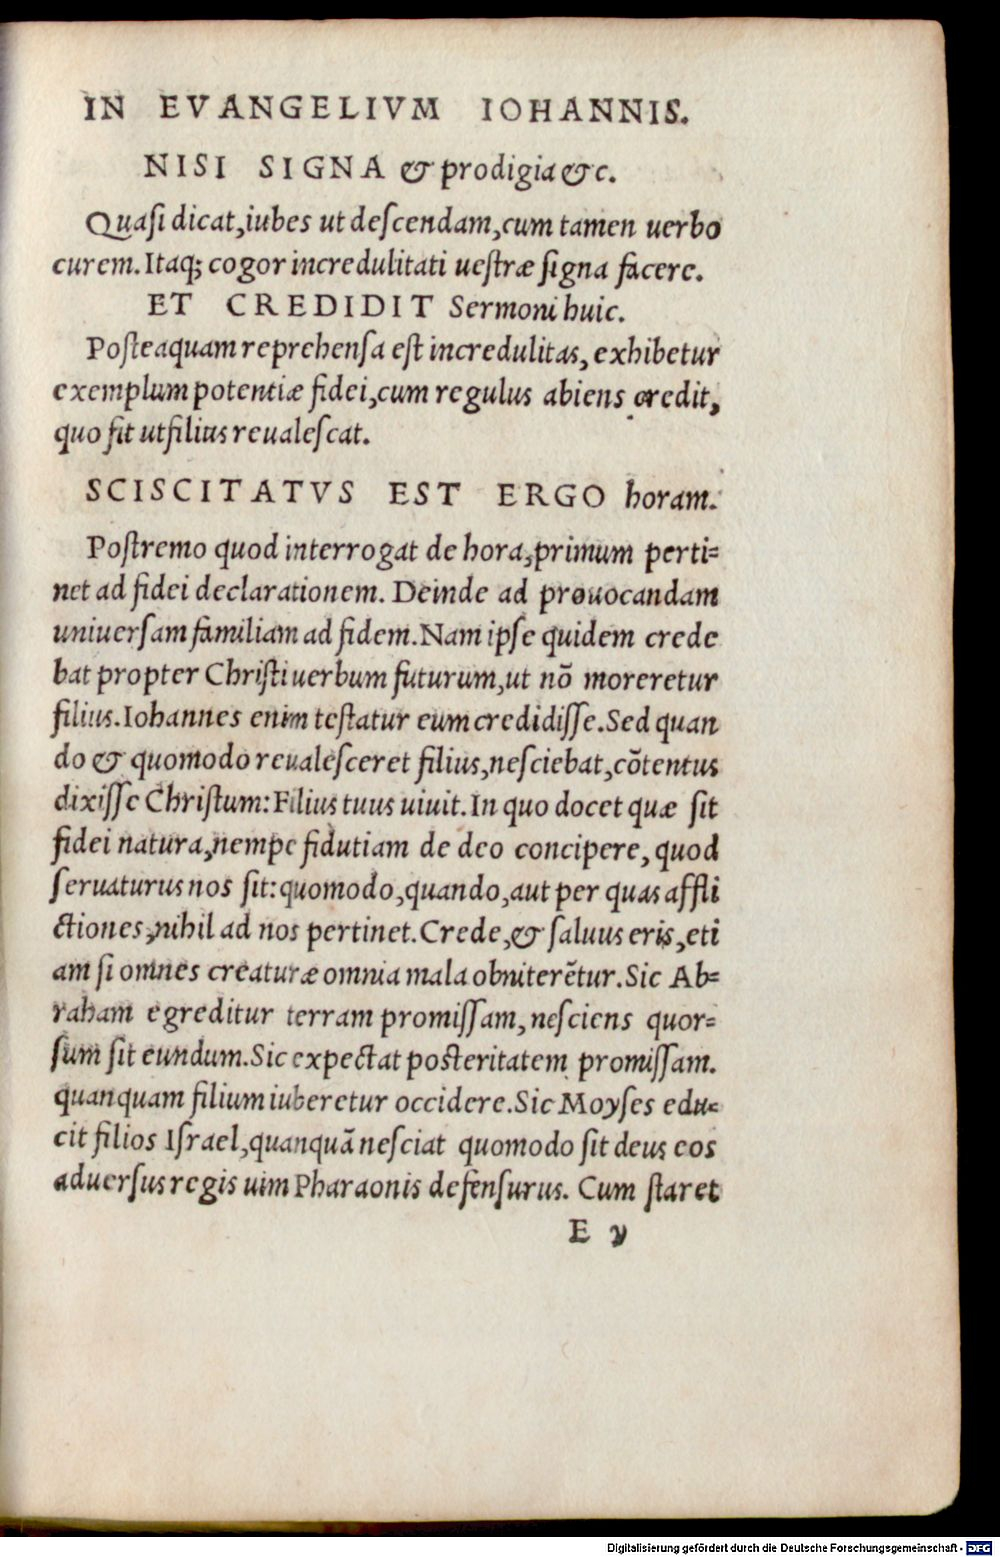 IN EVANGELIVM IOHANNIS.
NISI SIGNA & prodigia &c.
Quaſi dicat, iubes ut deſcendam, cum tamen uerbo
curem. Itaq; cogor incredulitati ueſtræ ſigna facere.
ET CREDIDIT Sermoni huic.
Poſteaquam reprehenſa eſt incredulitas, exhibetur
exemplum potentiæ fidei, cum regulus abiens credit,
quo fit ut filius reualeſcat.
SCISCITATVS EST ERGO horam.
Poſtremo quod interrogat de hora, primum perti=
net ad fidei declarationem. Deinde ad prouocandam
uniuerſam familiam ad fidem. Nam ipſe quidem crede
bat propter Chriſti uerbum futurum, ut nõ moreretur
filius. Iohannes enim teſtatur eum credidiſſe. Sed quan
do & quomodo reualeſceret filius, neſciebat, cõtentus
dixiſſe Chriſtum: Filius tuus uiuit. In quo docet quæ ſit
fidei natura, nempe fidutiam de deo concipere, quod
ſeruaturus nos ſit: quomodo, quando, aut per quas affli
ctiones, nihil ad nos pertinet. Crede, & ſaluus eris, eti
am ſi omnes creaturæ omnia mala obniterẽtur. Sic Ab=
raham egreditur terram promiſſam, neſciens quor=
ſum ſit eundum. Sic expectat poſteritatem promiſſam.
quanquam filium iuberetur occidere. Sic Moyſes edu=
cit filios Iſrael, quanquã neſciat quomodo ſit deus eos
aduerſus regis uim Pharaonis defenſurus. Cum ſtaret
E v
Digitalisierung gefördert durch die Deutsche Forschungsgemeinschaft - DFG